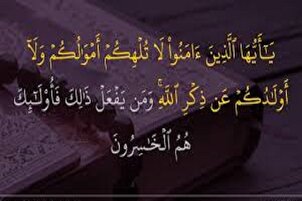 يَـٰٓأَيُّهَا ٱلَّذِينَ ءَامَنُوا۟ لَا تُلْهِكُمْ أَمْوَٰلُكُمْ وَلَآ
أَوْلَـٰدُكُمْ عَن ذِكْرِ ٱللَّهِ ۚ وَمَن يَفْعَلْ ذَٰلِكَ فَأُو۟لَـٰٓئِكَ
هُمُ ٱلْخَـٰسِرُونَ